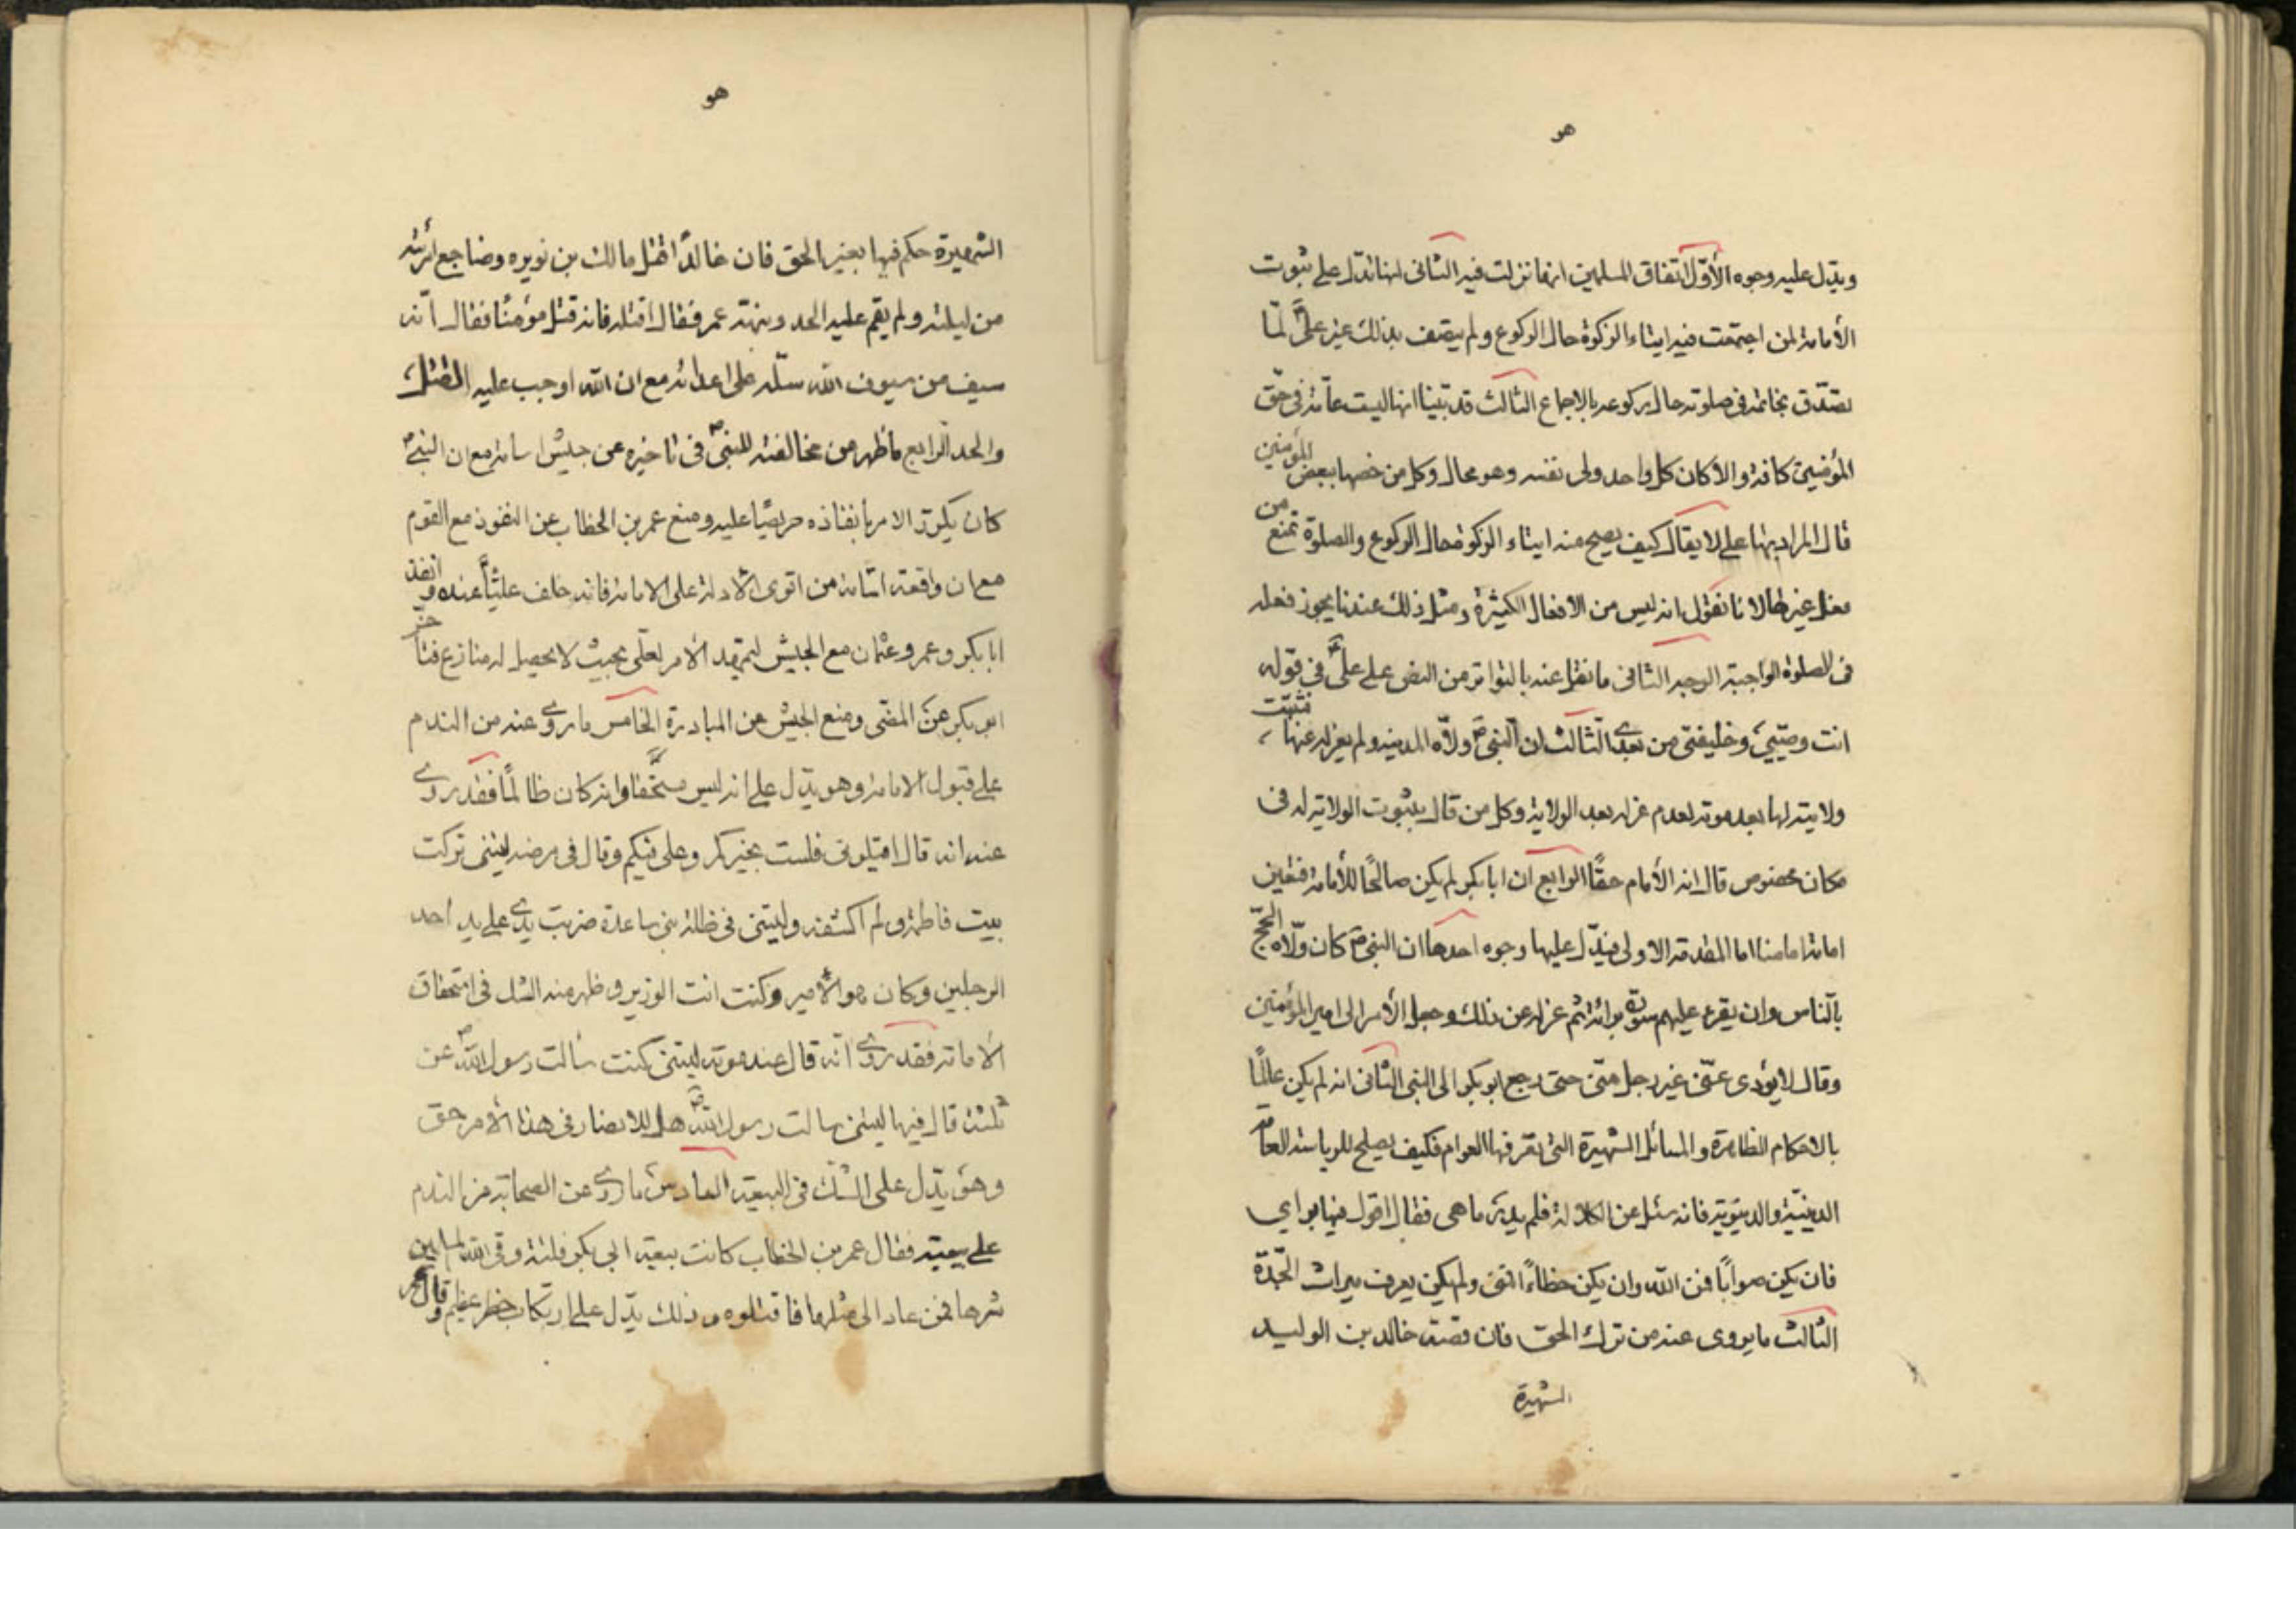 هو
ويدل عليه وجوه الأول اتفاق المسلمين انها نزلت فيه الثانى انها تدل على ثبوت
الأمامة لمن اجتمعت فيه ايتاء الزكوة حال الركوع ولم يتصف بذلك غير على لما
تصدق بخاتمه فى صلوته حال ركوعه بالاجماع الثالث قد بينا انها ليست عامة فى حق
المؤمنين كافة والا كان كل واحد ولى نفسه وهو محال وكل من خصها ببعض المؤمنين
قال المراد بها على لا يقال كيف يصح منه ايتاء الزكوة حال الركوع والصلوة تمنع من
فعل غيرها لانا نقول انه ليس من الافعال الكثيرة ومثل ذلك عندنا يجوز فعله
فى الصلوة الواجبة الوجه الثانى ما نقل عنه بالتواتر من النص على على فى قوله
انت وصيى وخليفتى من بعدى الثالث ان النبى ولاه المدينة ولم يعزله عنها فثبتت
ولايته لها بعد موته لعدم عزله بعد الولاية وكل من قال بثبوت الولاية له فى
مكان مخصوص قال انه الأمام حقا الرابع ان ابا بكر لم يكن صالحا للأمامة فتعين
امامة امامنا اما المقدمة الاولى فيدل عليها وجوه احدها ان النبى كان ولاه الحج
بالناس وان يقرء عليهم سورة برائة ثم عزله عن ذلك وجعل الأمر الى امير المؤمنين
وقال لا يؤدى عنى غير رجل منى حتى رجع ابو بكر الى النبى الثانى انه لم يكن عالما
بالاحكام الظاهرة والمسائل الشهيرة التى تعرفها العوام فكيف يصلح للرياسة العامة
الدينية والدنيوية فانه سئل عن الكلالة فلم يدر ما هى فقال اقول فيها برايي
فان يكن صوابا فمن الله وان يكن خطاءً فمنى ولم يكن يعرف ميراث الجدة
الثالث ما يروى عنه من ترك الحق فان قصة خالد بن الوليد
الشهيرة
هو
الشهيرة حكم فيها بغير الحق فان خالدا قتل مالك بن نويره وضاجع امرئته
من ليلته ولم يقم عليه الحد ونبهته عمر فقال اقتله فانه قتل مؤمنا فقال انه
سيف من سيوف الله سله على اعدائه مع ان الله اوجب عليه القتل
والحد الرابع ما ظهر من مخالفته للنبى فى تاخيره عن جيش اسامة مع ان النبى
كان يكرر الامر بانفاذه حريصا عليه ومنع عمر بن الخطاب عن النفوذ مع القوم
مع ان واقعة اسامة من اقوى الأدلة على الامامة فانه خلف عليا عنده وانفذ
ابا بكر وعمر وعثمان مع الجيش ليتمهد الأمر لعلى بحيث لا يحصل له منازع فتاخر
ابو بكر عن المضى ومنع الجيش من المبادرة الخامس ما روى عنه من الندم
على قبول الامامة وهو يدل على انه ليس مستحقا وانه كان ظالما فقد روى
عنه انه قال اقيلونى فلست بخيركم وعلى فيكم وقال فى مرضه ليتنى تركت
بيت فاطمة ولم اكشفه وليتنى فى ظلة بنى ساعدة ضربت يدى على يد احد
الرجلين وكان هو الأمير وكنت انت الوزير وظهر منه الشك فى استحقاق
الأمامة فقد روى انه قال عند موته ليتنى كنت سالت رسول الله عن
ثلثة قال فيها ليتنى سالت رسول الله هل للانصار فى هذا الأمر حق
وهو يدل على الشك فى البيعة السادس ما روى عن الصحابة من الندم
على بيعته فقال عمر بن الخطاب كانت بيعة ابى بكر فلتة وقى الله المسلمين
شرها فمن عاد الى مثلها فاقتلوه وذلك يدل على ارتكاب خطر عظيم وقال